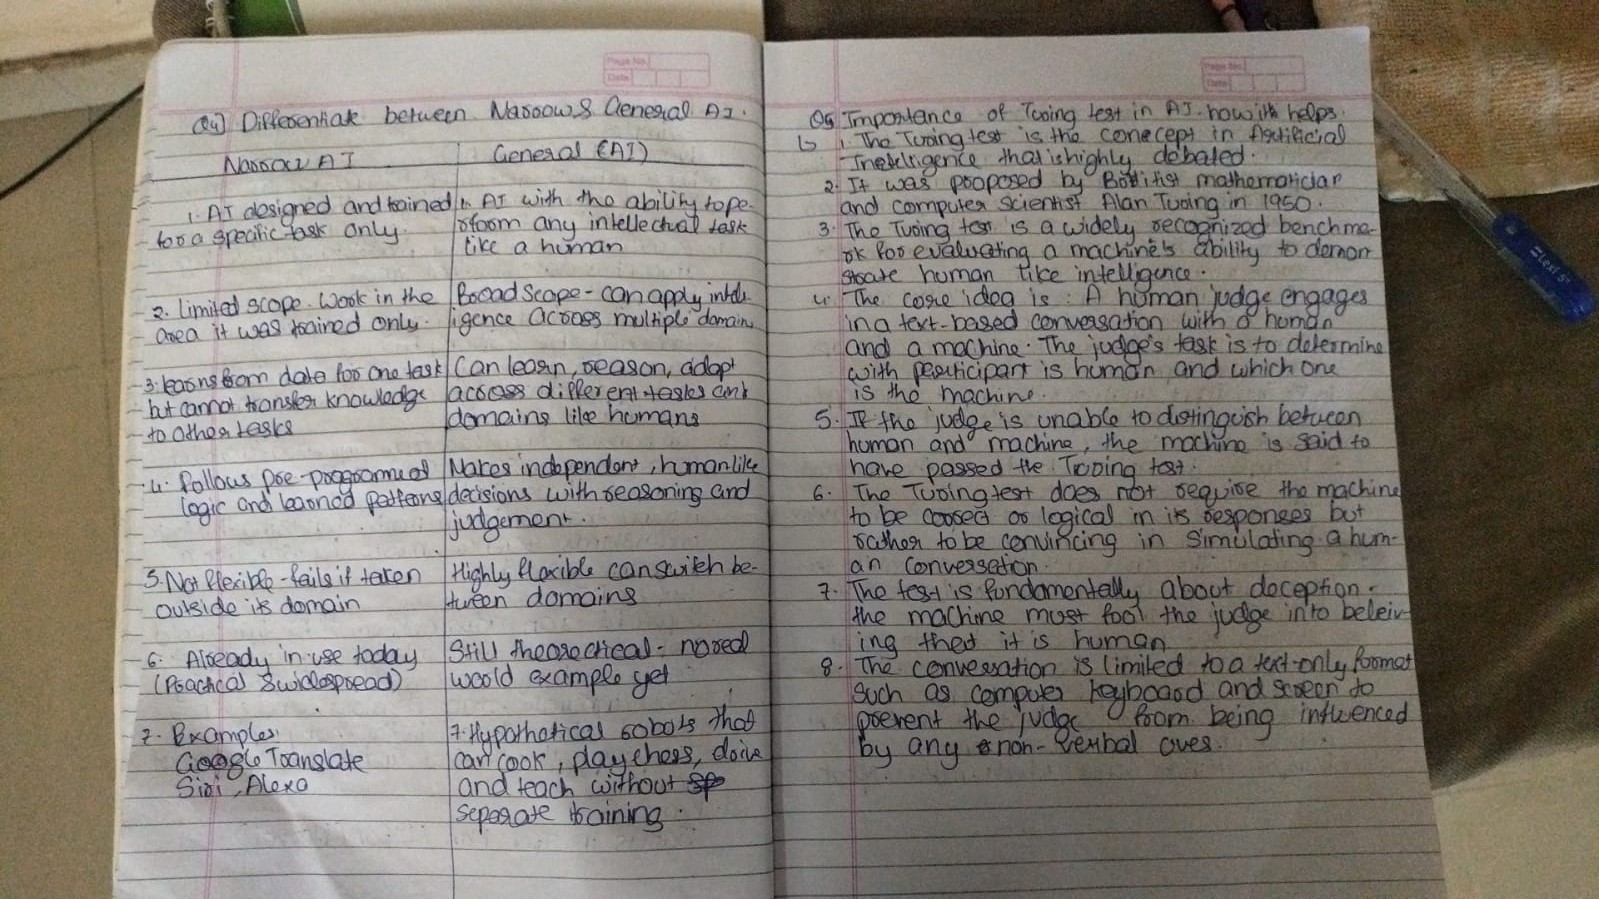 Page No.
Date
Q4) Differentiate between Narrow & General AI.
Narrow AI
General (AI)
1. AI designed and trained
for a specific task only.
1. AI with the ability to pe-
rform any intellectual task
like a human
2. Limited scope. Work in the
area it was trained only.
Broad Scope - can apply intell-
igence across multiple domain
3. learns from data for one task
but cannot transfer knowledge
to other tasks
Can learn, reason, adapt
across different tasks and
domains like humans
4. Follows pre-programmed
logic and learned patterns
Makes independent, human like
decisions with reasoning and
judgement.
5. Not flexible - fails if taken
outside its domain
Highly flexible can switch be-
tween domains
6. Already in use today
(Practical & widespread)
Still theorectical - no real
world example yet
7. Examples
Google Translate
Siri, Alexa
7. Hypothetical robots that
can cook, play chess, drive
and teach without
seperate training.
Page No.
Date
Q5 Importance of Turing test in AI. how it helps.
↳ 1. The Turing test is the conecept in Artificial
Inetelligence that is highly debated.
2. It was proposed by mathematician
and computer scientist Alan Turing in 1950.
3. The Turing test is a widely recognized benchma-
rk for evaluating a machine's ability to demon
strate human like intelligence.
4. The core idea is : A human judge engages
in a text-based conversation with a human
and a machine. The judge's task is to determine
with participant is human and which one
is the machine.
5. If the judge is unable to distinguish between
human and machine, the machine is said to
have passed the Turing test.
6. The Turing test does not require the machine
to be correct or logical in its responses but
rather to be convincing in simulating a hum-
an conversation.
7. The test is fundamentally about deception.
the machine must fool the judge into beleiv-
ing that it is human
8. The conversation is limited to a text-only format
such as computer keyboard and screen to
prevent the judge from being influenced
by any non-verbal cues.